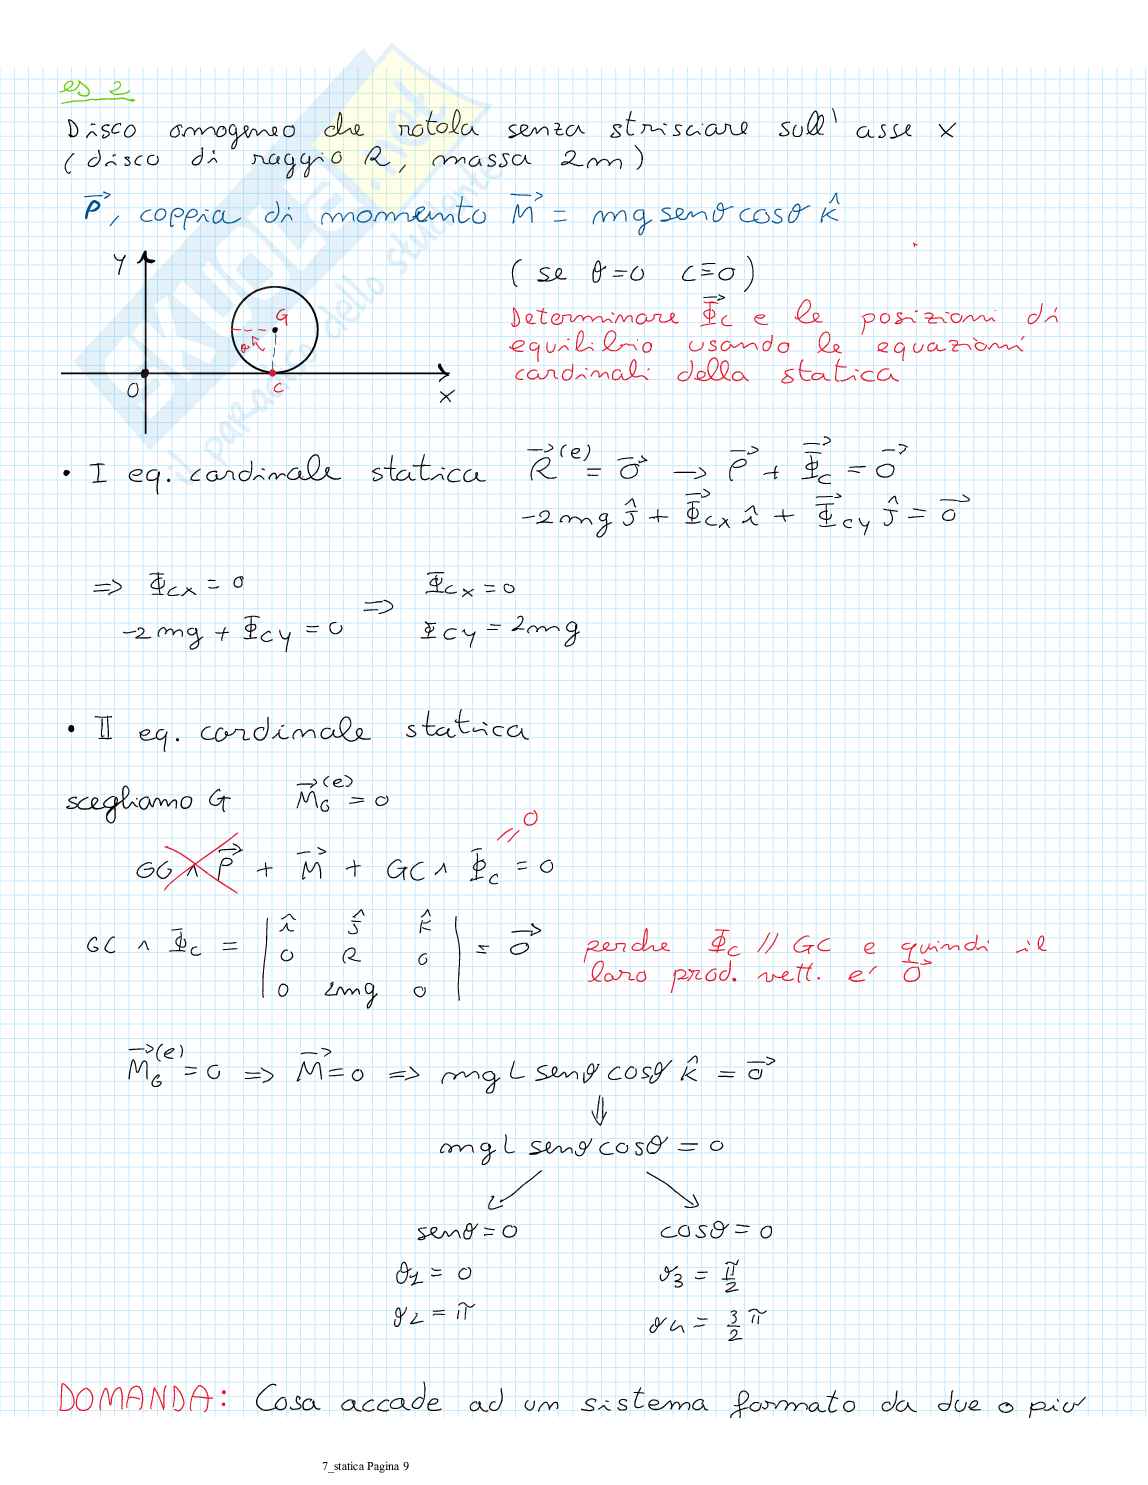 es 2
Disco omogeneo che rotola senza strisciare sull' asse x
(disco di raggio R, massa 2m)
P⃗, coppia di momento M⃗ = mg senθ cosθ k̂
(se θ=0 C≡O)
Determinare Φ⃗c e le posizioni di
equilibrio usando le equazioni
cardinali della statica
y
G
θ
R
O
C
x
SKUOLA.not
il paradiso dello studente
• I eq. cardinale statica R⃗(e) = 0⃗ → P⃗ + Φ⃗c = 0⃗
-2mg ĵ + Φ⃗cx î + Φ⃗cy ĵ = 0⃗
⇒ Φcx = 0 ⇒ Φcx = 0
-2mg + Φcy = 0 Φcy = 2mg
• II eq. cardinale statica
scegliamo G M⃗G(e) = 0
GG ∧ P⃗ + M⃗ + GC ∧ Φ̄c = 0
// 0
GC ∧ Φ̄c = | î ĵ k̂ | = 0⃗ perche Φ̄c // GC e quindi il
0 R 0 loro prod. vett. e' 0⃗
0 2mg 0
M⃗G(e) = 0 ⇒ M⃗ = 0 ⇒ mg L senθ cosθ k̂ = 0⃗
⇓
mg L senθ cosθ = 0
senθ = 0 cosθ = 0
θ1 = 0 θ3 = π/2
θ2 = π θ4 = 3/2 π
DOMANDA: Cosa accade ad un sistema formato da due o piu'
7_statica Pagina 9